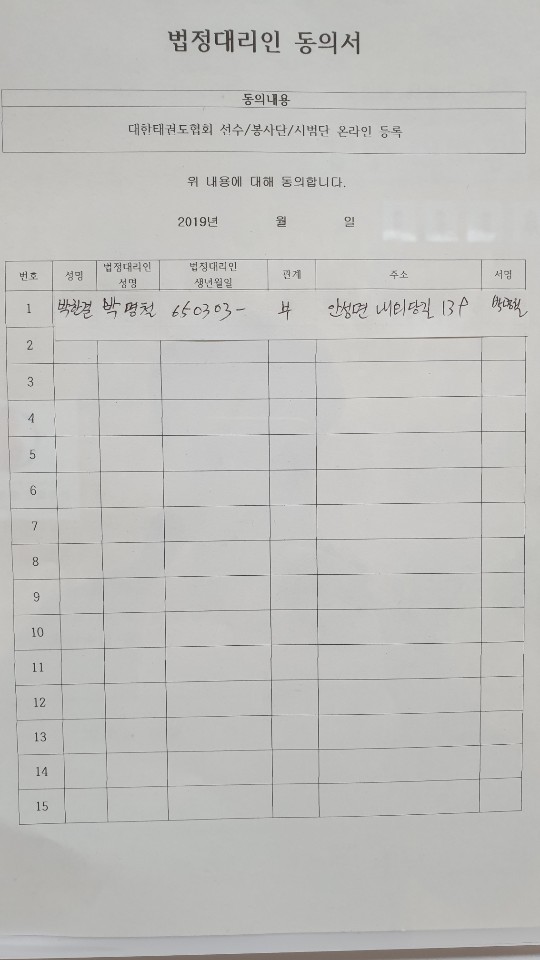 법정대리인 동의서
동의내용
대한태권도협회 선수/봉사단/시범단 온라인 등록
위 내용에 대해 동의합니다.
2019년 월 일
번호 성명 법정대리인 성명 법정대리인 생년월일 관계 주소 서명
1 박한결 박명철 650303- 부 안성면 내티당길 13 박명철
2
3
4
5
6
7
8
9
10
11
12
13
14
15